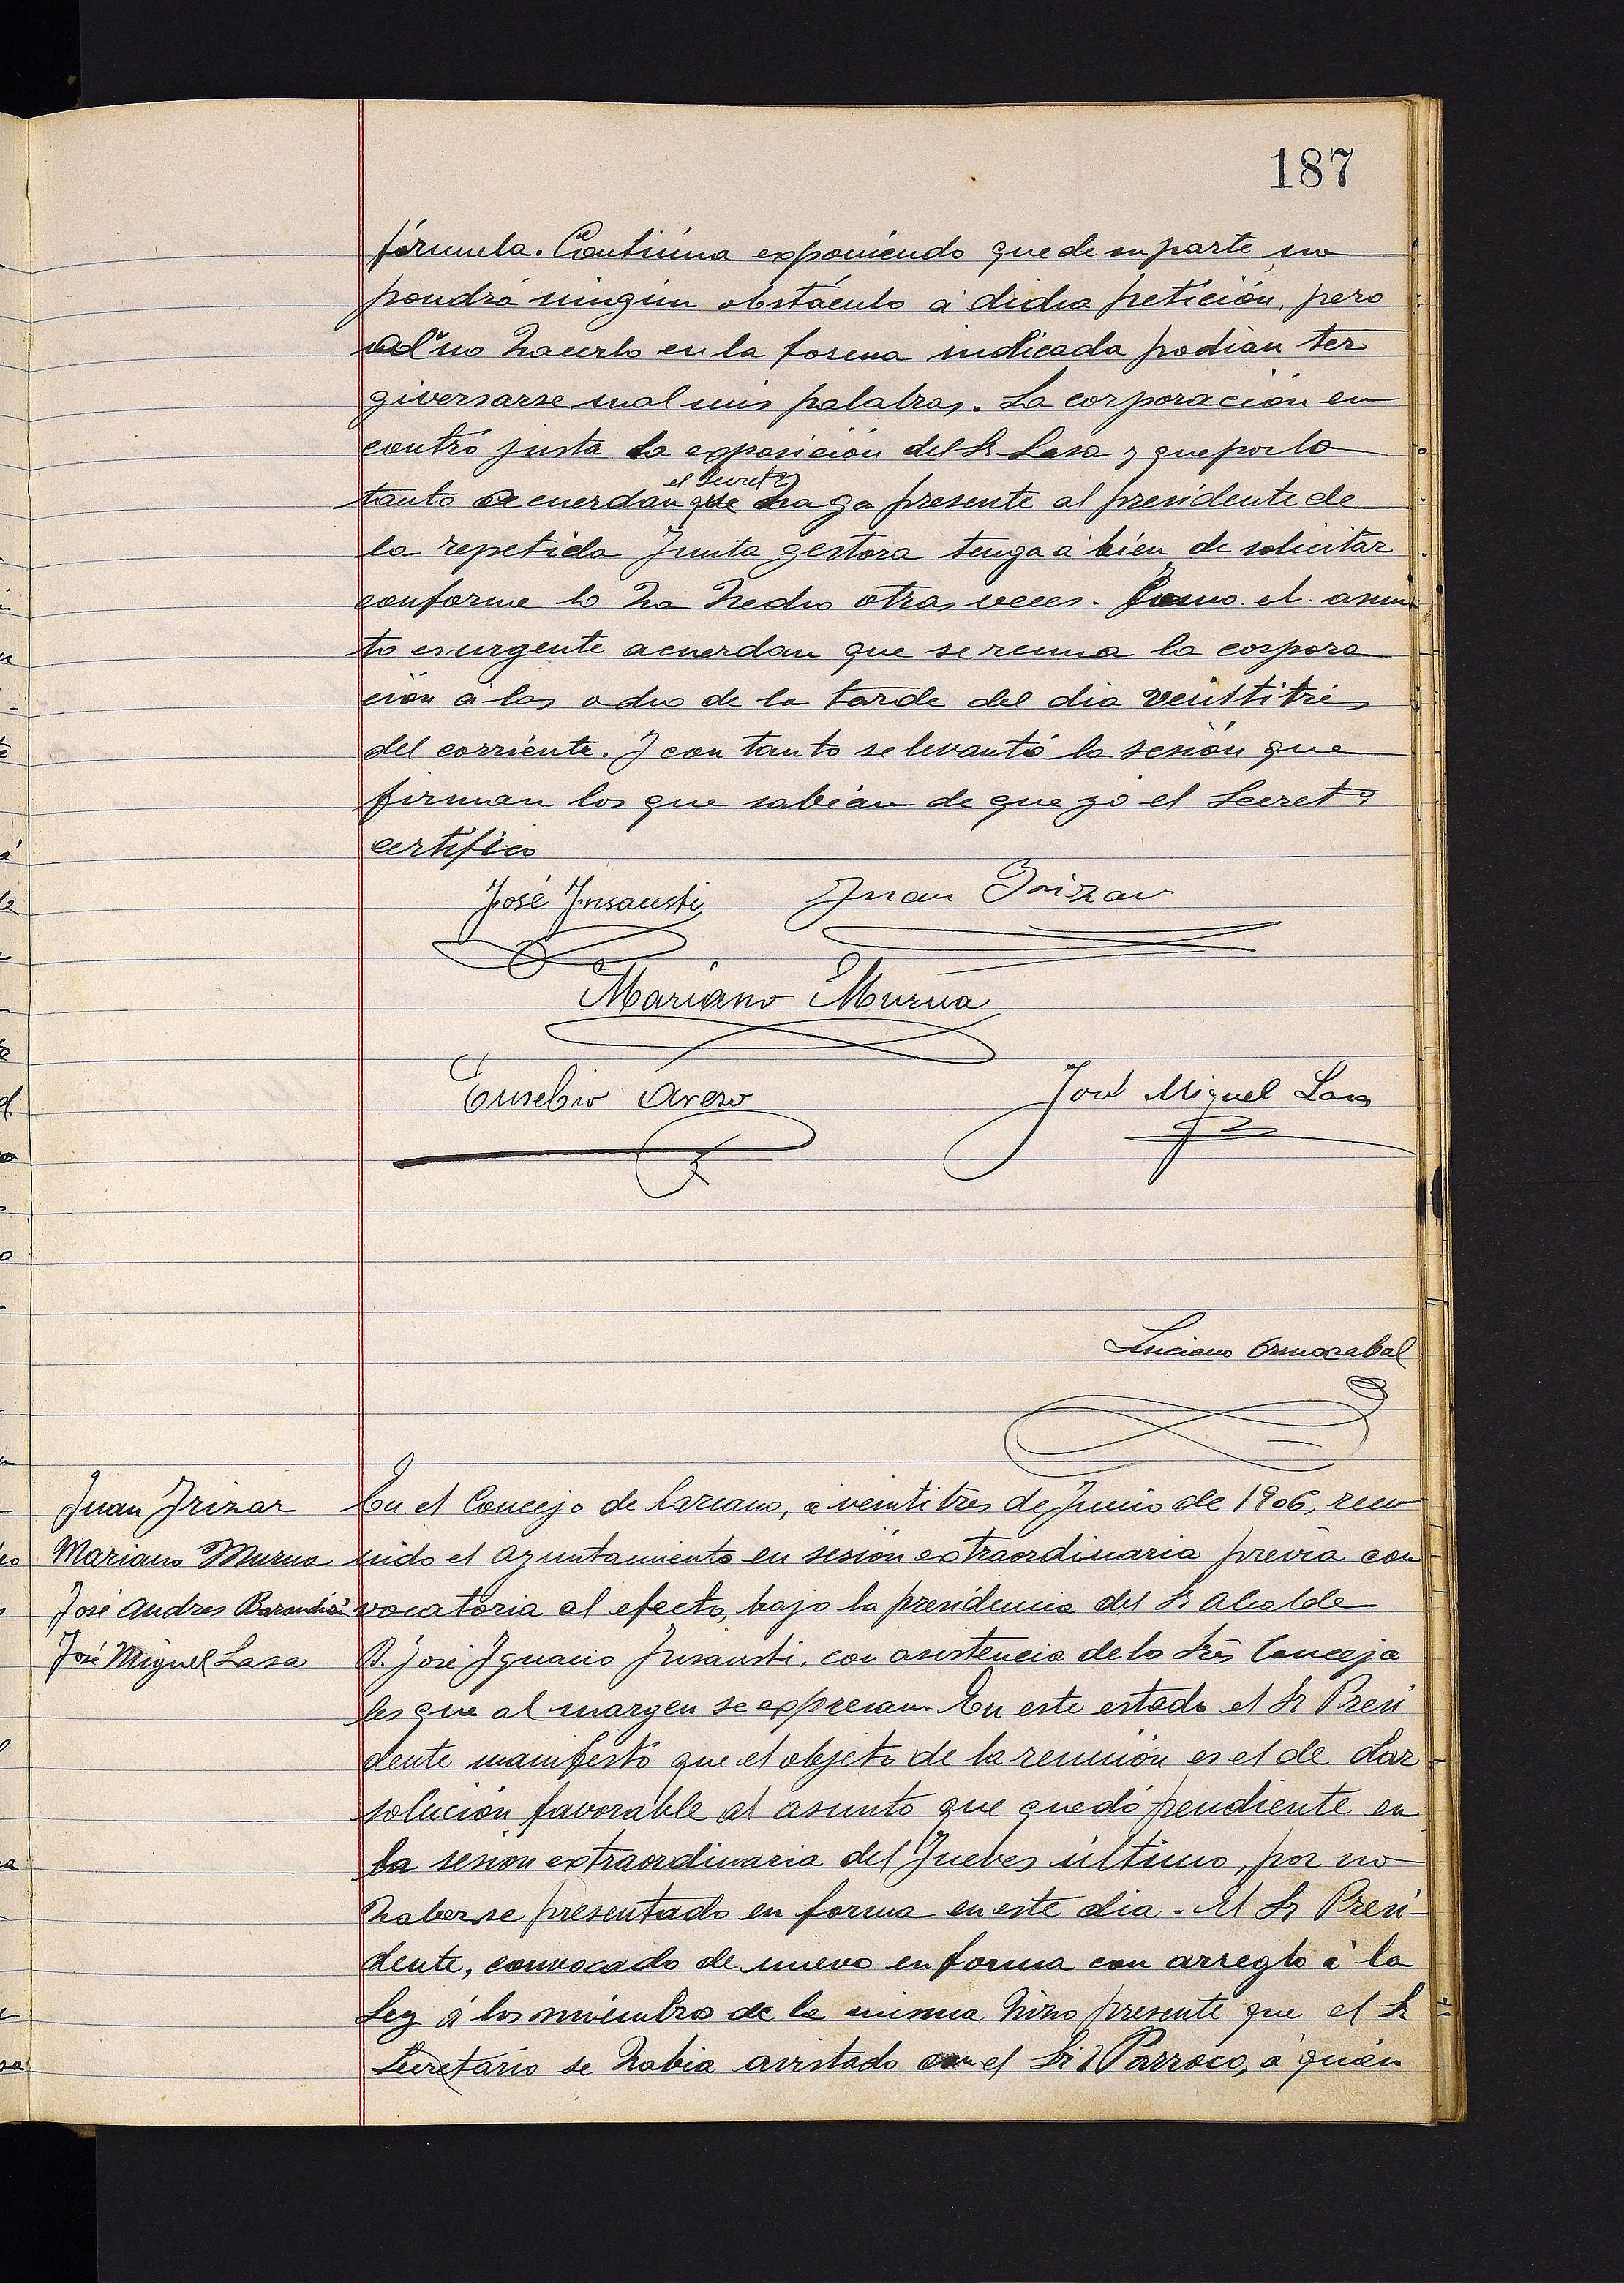 187
fórmula. Continúa exponiendo que de su parte no
pondrá ningún obstáculo á dicha petición, pero
al no hacerlo en la forma indicada podian ter
giversarse mal mis palabras. La corporación en
contró justa la exposición del Sr Lasa y que por lo
el Secretº
tanto acuerdan que haga presente al presidente de
la repetida Junta gestora tenga á bien de solicitar
conforme lo ha hecho otras veces. Como el asun
to es urgente acuerdan que se reuna la corpora
ción á las ocho de la tarde del dia veintitrés
del corriente. Y con tanto se levantó la sesión que
firman los que sabian de que yó el Secretº
certifico
José Insausti Juan Irizar
Mariano Murua
Eusebio Areso José Miguel Lasa
Luciano Ormazabal
Juan Irizar
Mariano Murua
José Andres Barandian
José Miguel Lasa
En el Concejo de Lazcano, a veintitres de Junio de 1906, reu
nido el Ayuntamiento en sesión extraordinaria previa con
vocatoria al efecto, bajo la presidencia del Sr Alcalde
D. José Ignacio Insausti, con asistencia de lo Srs Conceja
les que al margen se expresan. En este estado el Sr Presi
dente manifestó que el objeto de la reunión es el de dar
solución favorable al asunto que quedó pendiente en
la sesión extraordinaria del Jueves último, por no
haberse presentado en forma en este dia. El Sr Presi-
dente, convocado de nuevo en forma con arreglo á la
Ley á los miembros de la misma hizo presente que el Sr
Secretario se habia avistado con el Sr Parroco, á quién